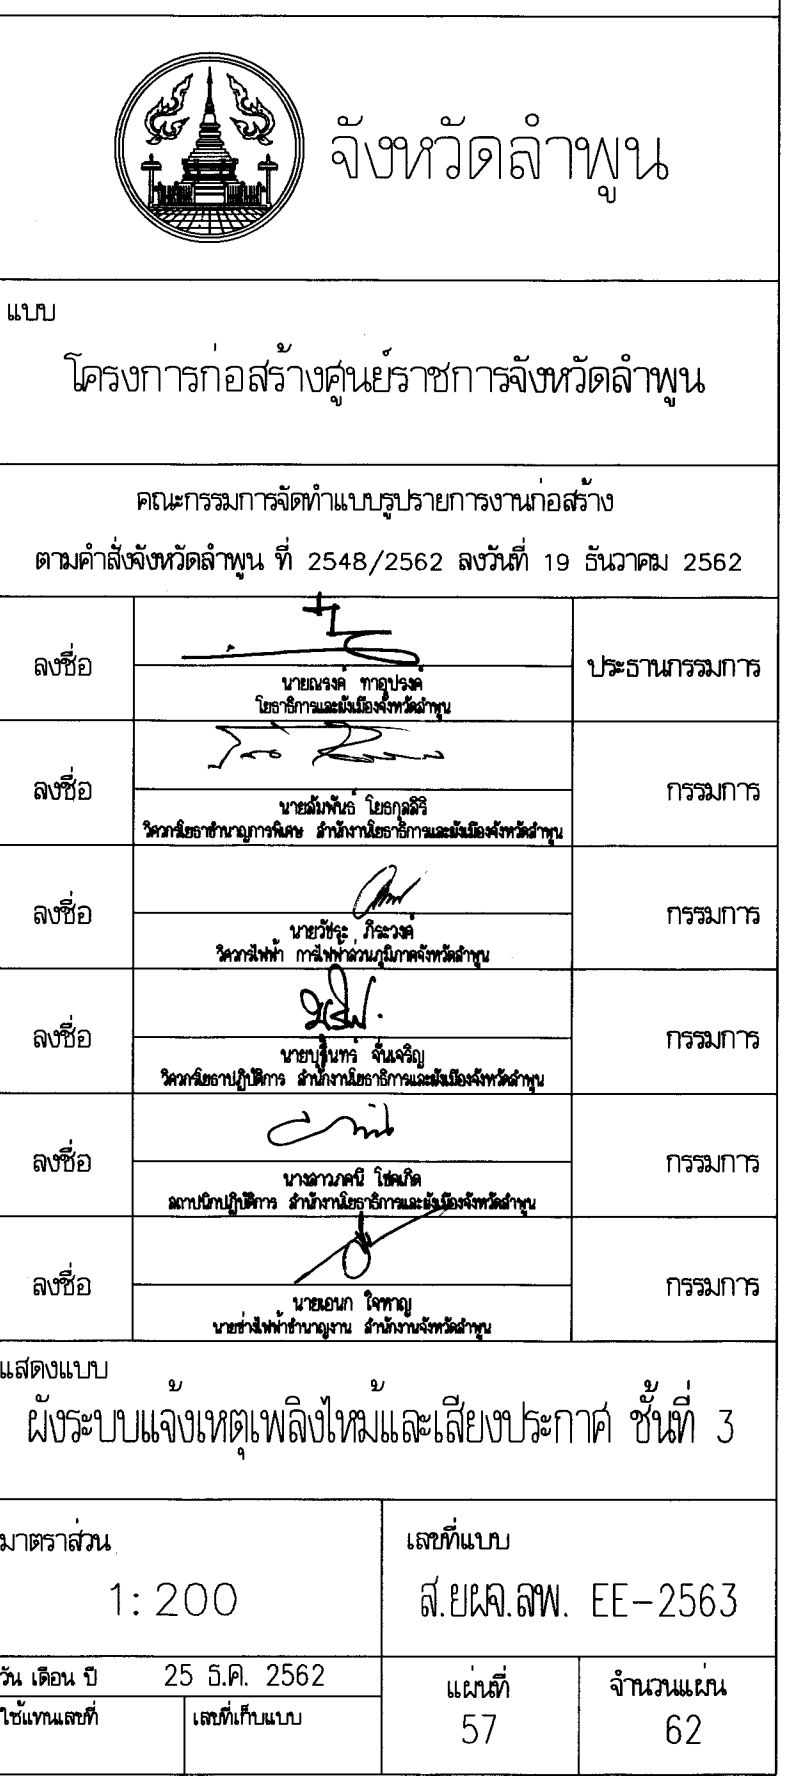 จังหวัดลำพูน
แบบ
โครงการก่อสร้างศูนย์ราชการจังหวัดลำพูน
คณะกรรมการจัดทำแบบรูปรายการงานก่อสร้าง
ตามคำสั่งจังหวัดลำพูน ที่ 2548/2562 ลงวันที่ 19 ธันวาคม 2562
ลงชื่อ
ประธานกรรมการ
นายณรงค์ ทาอุปรงค์
โยธาธิการและผังเมืองจังหวัดลำพูน
ลงชื่อ
กรรมการ
นายสัมพันธ์ โยธกุลสิริ
วิศวกรโยธาชำนาญการพิเศษ สำนักงานโยธาธิการและผังเมืองจังหวัดลำพูน
ลงชื่อ
กรรมการ
นายวัชระ ภิระวงค์
วิศวกรไฟฟ้า การไฟฟ้าส่วนภูมิภาคจังหวัดลำพูน
ลงชื่อ
กรรมการ
นายบุรินทร์ จั่นเจริญ
วิศวกรโยธาปฏิบัติการ สำนักงานโยธาธิการและผังเมืองจังหวัดลำพูน
ลงชื่อ
กรรมการ
นางสาวภคนี โชคเกิด
สถาปนิกปฏิบัติการ สำนักงานโยธาธิการและผังเมืองจังหวัดลำพูน
ลงชื่อ
กรรมการ
นายเอนก ใจหาญ
นายช่างไฟฟ้าชำนาญงาน สำนักงานจังหวัดลำพูน
แสดงแบบ
ผังระบบแจ้งเหตุเพลิงไหม้และเสียงประกาศ ชั้นที่ 3
มาตราส่วน
1:200
เลขที่แบบ
ส.ยผจ.ลพ. EE-2563
วัน เดือน ปี 25 ธ.ค. 2562
ใช้แทนเลขที่
เลขที่เก็บแบบ
แผ่นที่
57
จำนวนแผ่น
62